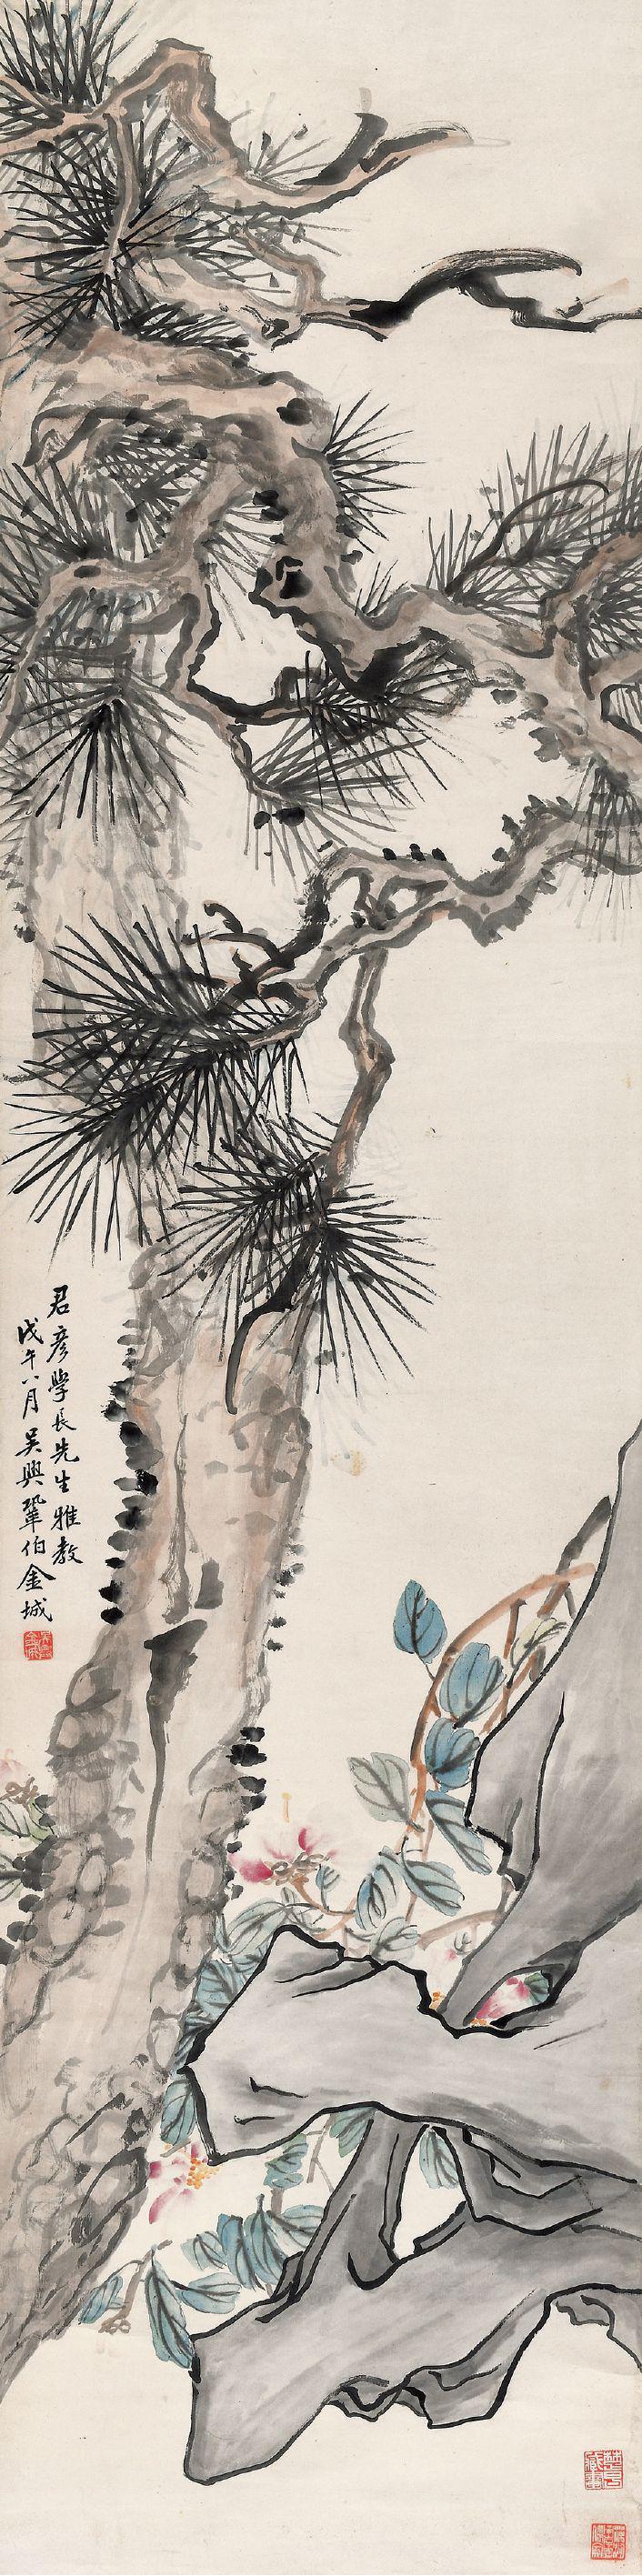 君彥學長先生雅教
戊午八月吳興鞏伯金城